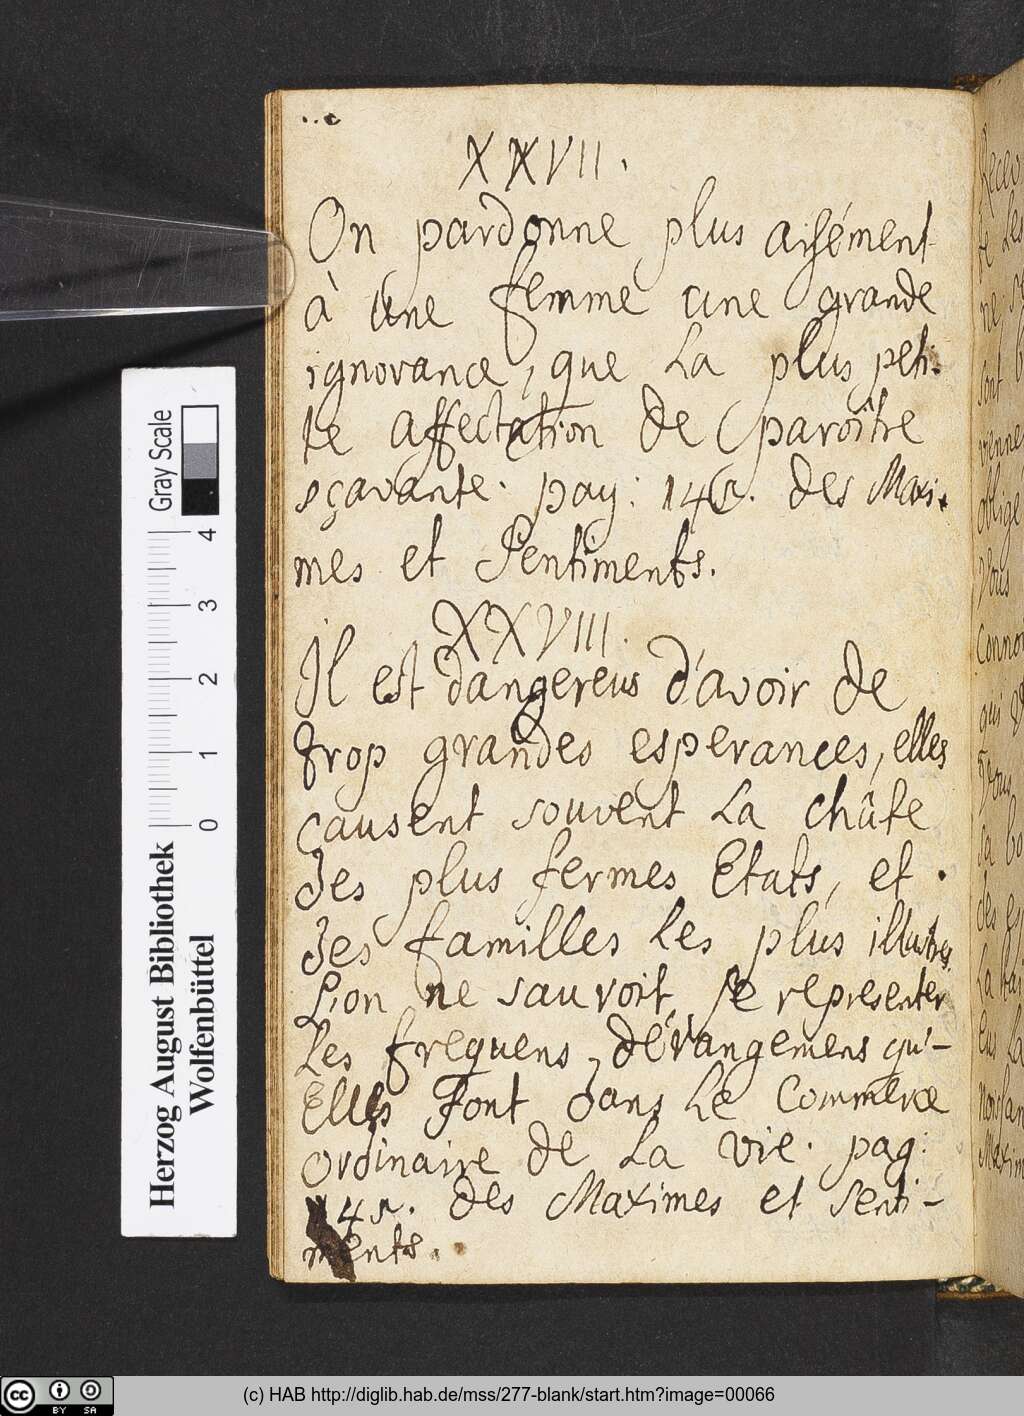 XXVII.
On pardonne plus aisément
à une femme une grande
ignorance, que La plus peti:
te affectation de paroître
sçavante. pag: 145. des Maxi-
mes et Sentiments.
XXVIII.
Il est dangereus d'avoir de
trop grandes esperances, elles
causent souvent La chûte
des plus fermes Etats, et
des familles Les plus illustres.
L'on ne sauroit se representer
Les frequens dérangemens qu'-
Elles Font dans Le Commerce
ordinaire de La vie. pag:
145. des Maximes et Senti-
ments.
Gray Scale
0 1 2 3 4
Herzog August Bibliothek
Wolfenbüttel
cc BY SA
(c) HAB http://diglib.hab.de/mss/277-blank/start.htm?image=00066